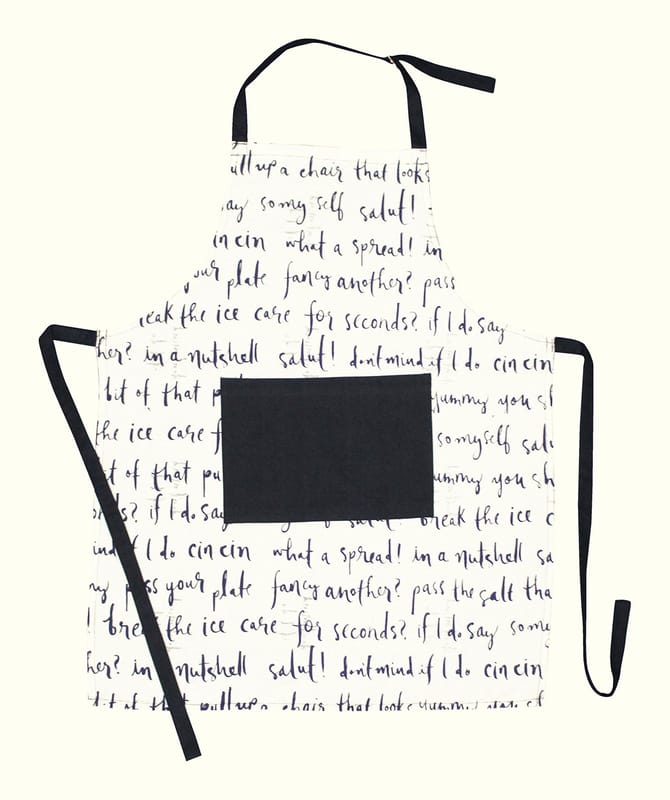 pull up a chair that looks
say so myself salut!
cin cin what a spread! in
your plate fancy another? pass
break the ice care for seconds? if I do say
her? in a nutshell salut! dont mind if I do cin cin
bit of that yummy you sh
the ice care so myself salu
bit of that pu yummy you sh
if I do say break the ice c
mind if I do cin cin what a spread! in a nutshell sa
pass your plate fancy another? pass the salt tha
break the ice care for seconds? if I do say some
her? in nutshell salut! dont mind if I do cin cin
bit of that pull up a chair that looks yummy